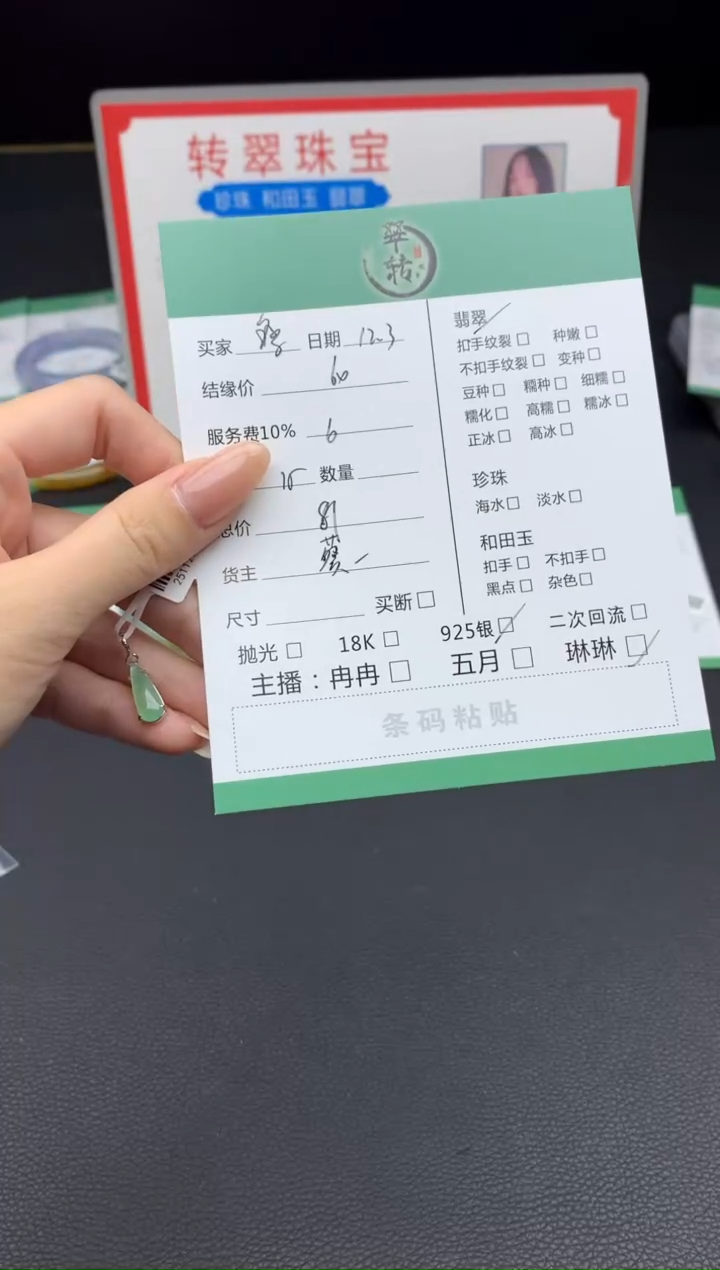 转翠珠宝
珍珠 和田玉 翡翠
翠转
买家 日期 12.3
结缘价 60
服务费10% 6
15 数量
总价 81
货主
尺寸 买断
抛光 18K 925银 二次回流
主播：冉冉 五月 琳琳
条码粘贴
翡翠
扣手纹裂 种嫩
不扣手纹裂 变种
豆种 糯种 细糯
糯化 高糯 糯冰
正冰 高冰
珍珠
海水 淡水
和田玉
扣手 不扣手
黑点 杂色